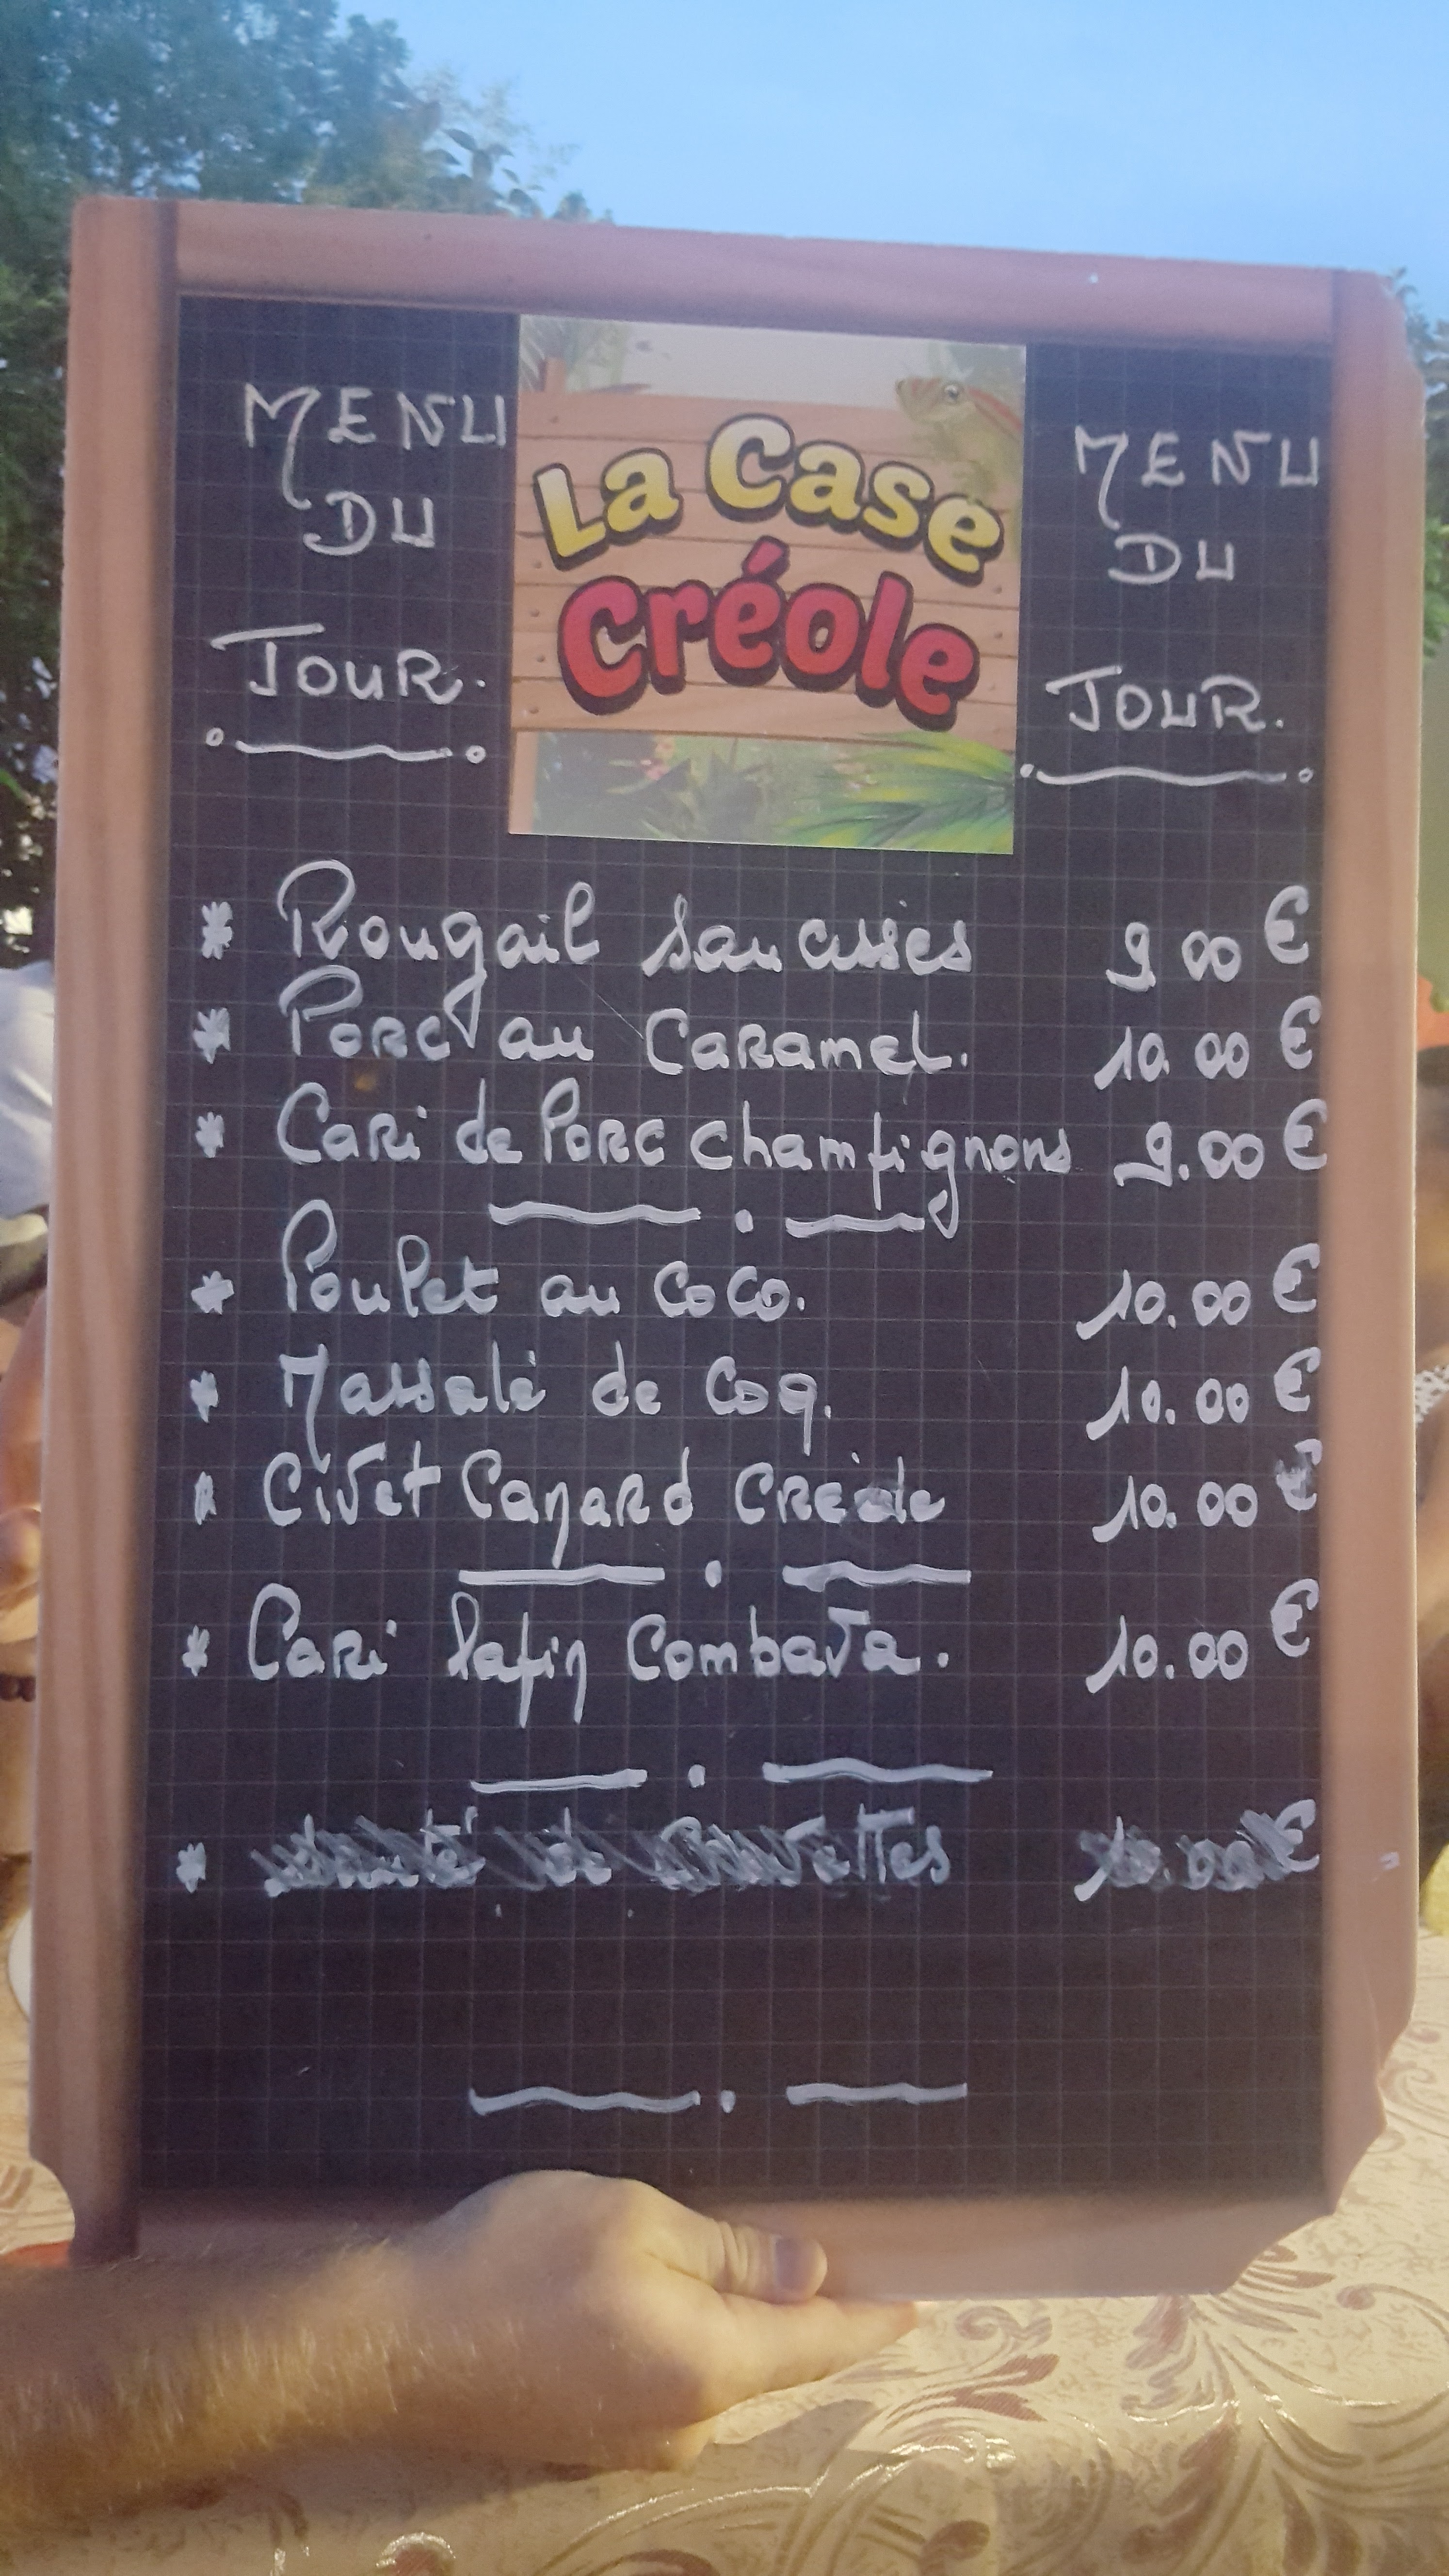 MENU
DU
JOUR.
La Case
Créole
MENU
DU
JOUR.
* Rougail saucisses 9.00 €
* Porc au Caramel. 10.00 €
* Cari de Porc Champignons 9.00 €
* Poulet au Coco. 10.00 €
* Massalé de Coq. 10.00 €
* Civet Canard Créole 10.00 €
* Cari Lapin Combava. 10.00 €
* de Crevettes 10.00 €